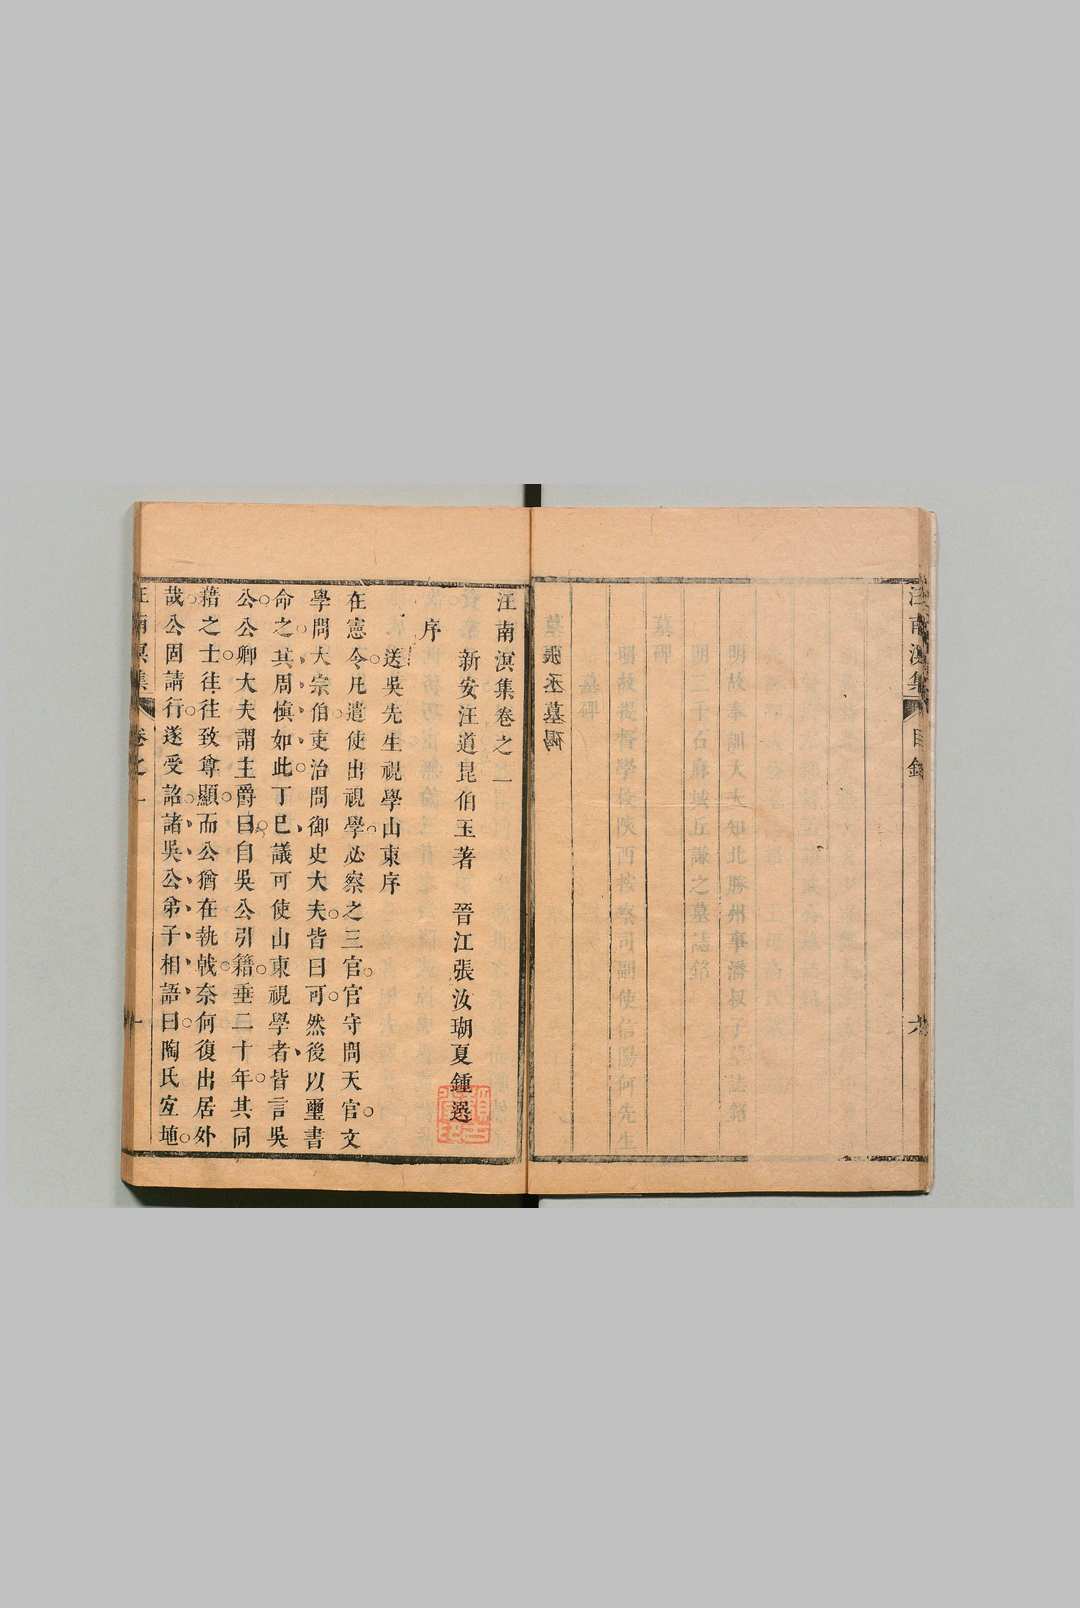 汪南溟集 目錄 六
墓碑
明故提督學校陝西按察司副使信陽何先生
墓碑
張丞墓碣
汪南溟集卷之一
新安汪道昆伯玉著 晉江張汝瑚夏鍾選
序
送吳先生視學山東序
在憲令凡遣使出視學必察之三官官守問天官文
學問大宗伯吏治問御史大夫皆曰可然後以璽書
命之其周慎如此丁巳議可使山東視學者皆言吳
公公卿大夫謂主爵曰自吳公引籍垂二十年其同
藉之士往往致尊顯而公猶在執戟奈何復出居外
哉公固請行遂受詔諸吳公弟子相語曰陶氏宜埴
汪南溟集 卷之一 一